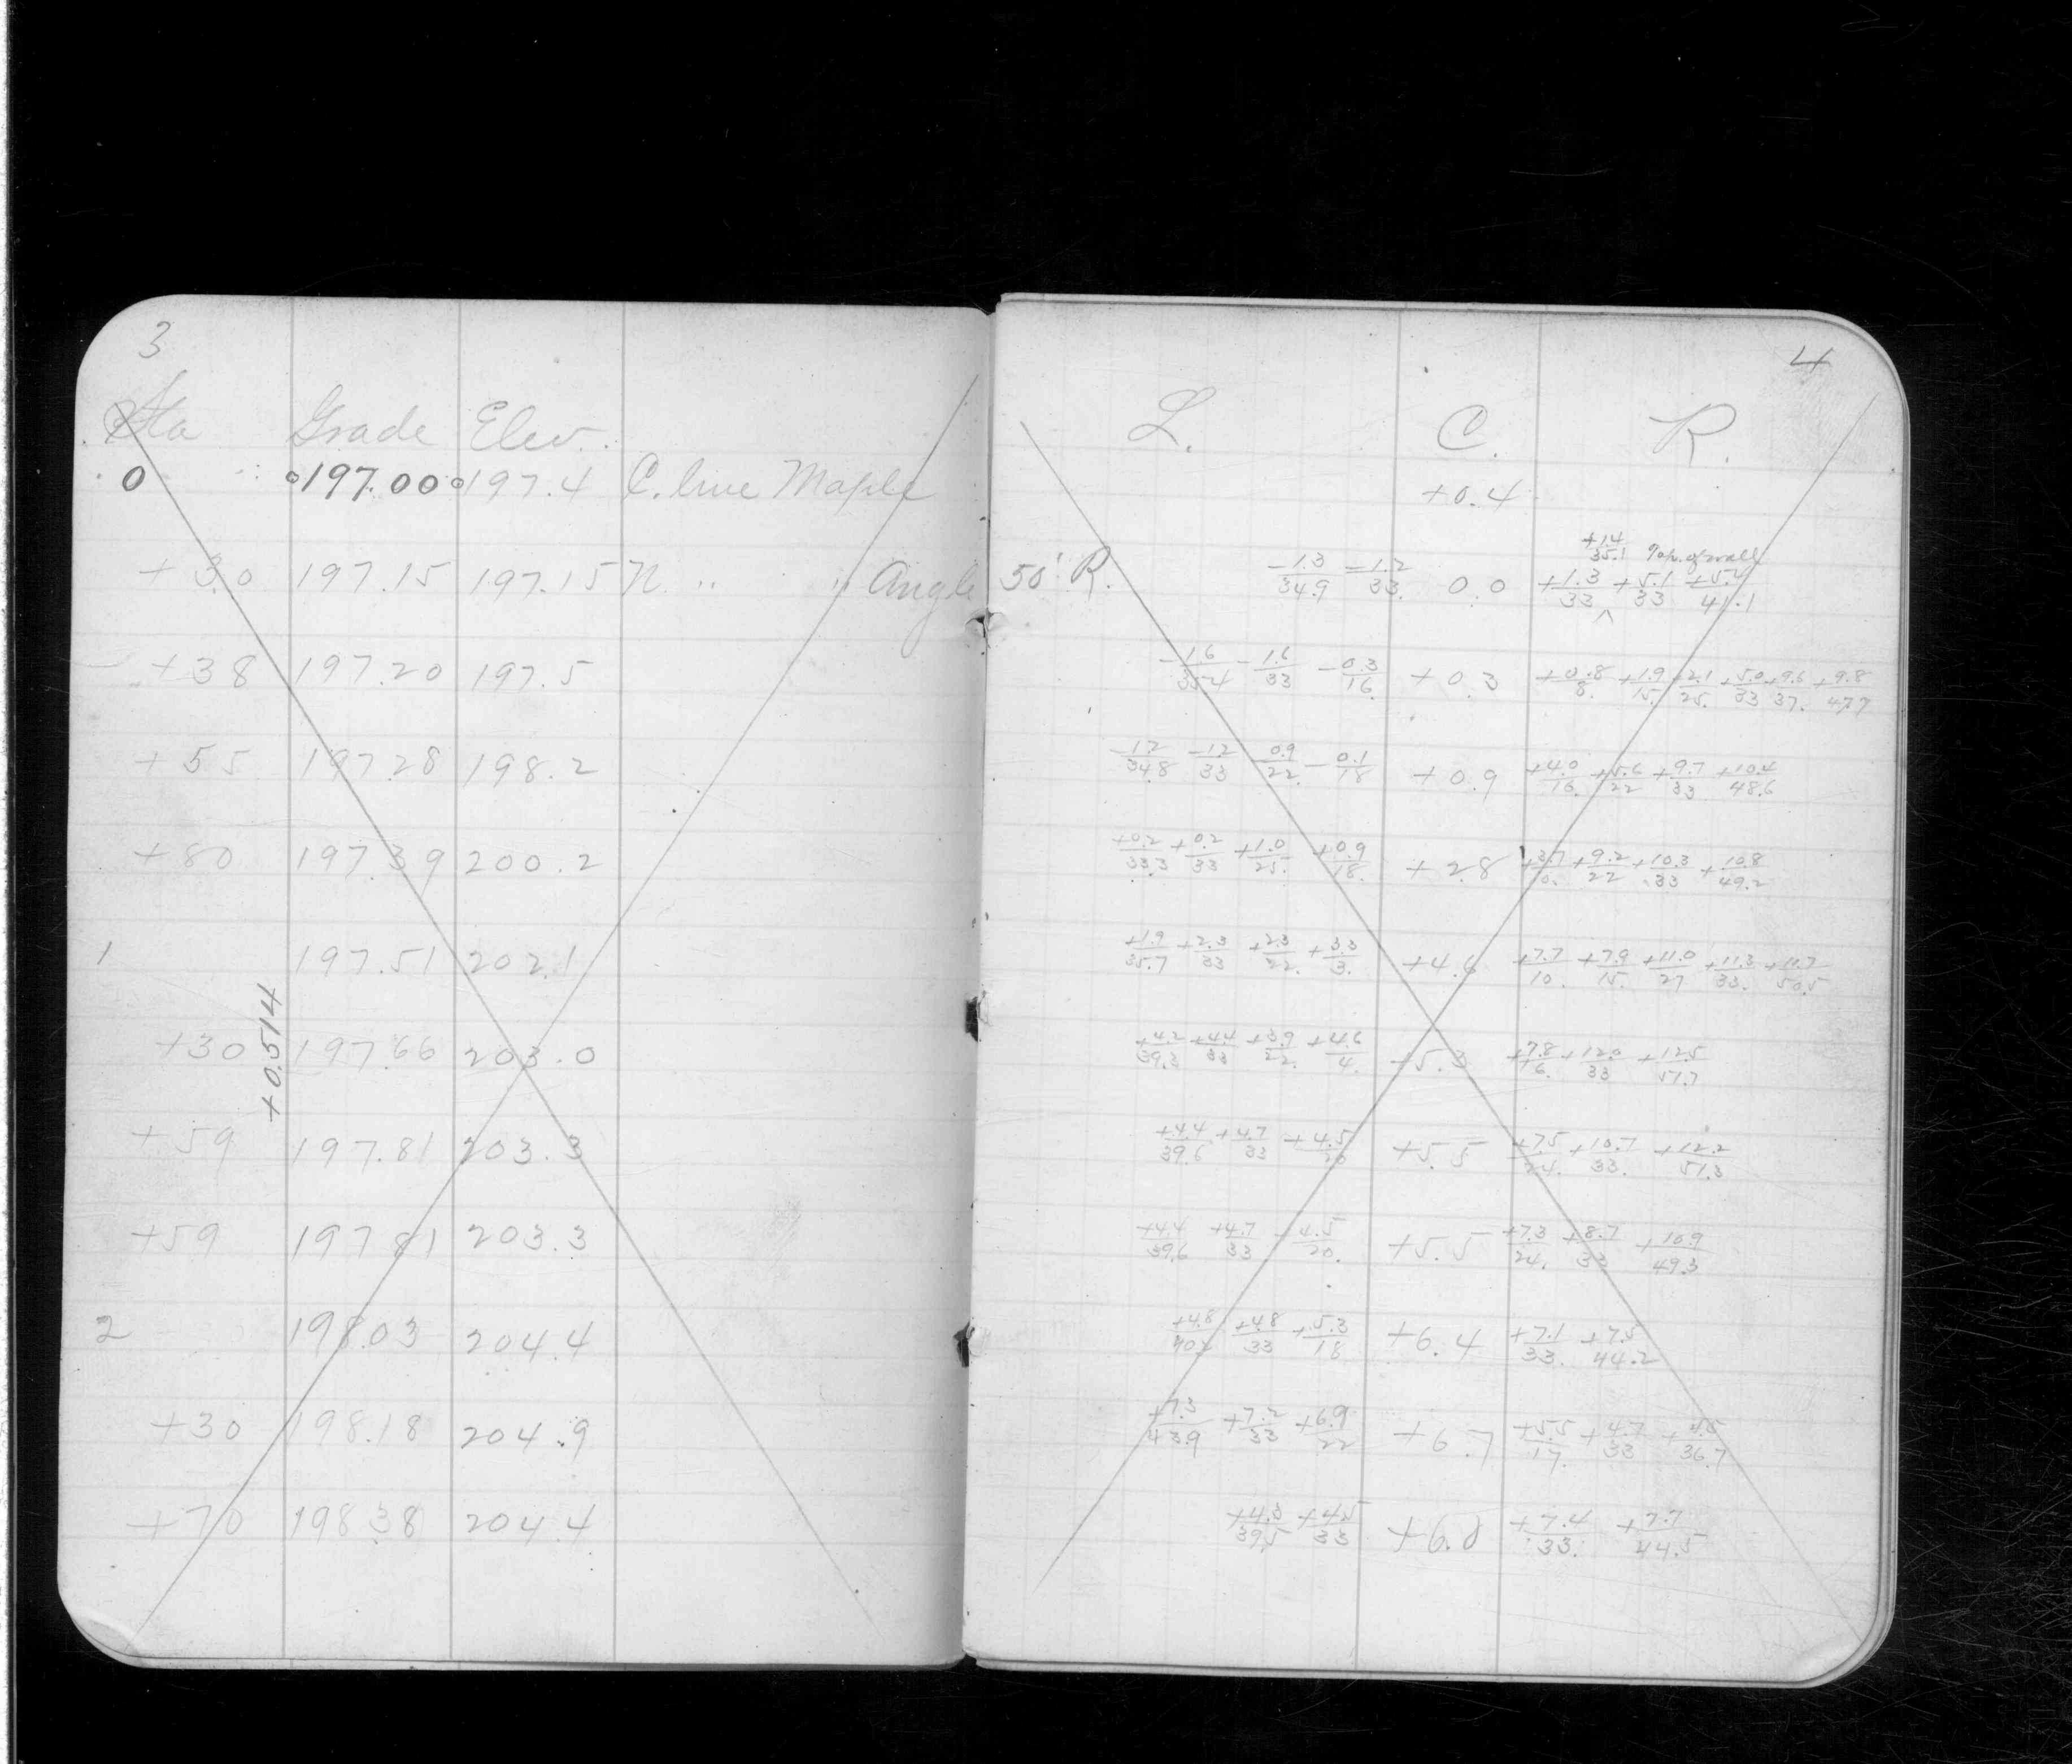 3
Sta Grade Elev.
0 197.00 197.4 C. line Maple
+30 197.15 197.15 N. " " Angle
+38 197.20 197.5
+55 197.28 198.2
+80 197.39 200.2
1 197.51 202.1
+0.514
+30 197.66 203.0
+59 197.81 203.3
+59 197.81 203.3
2 198.03 204.4
+30 198.18 204.9
+70 198.38 204.4
4
L. C. R.
+0.4
+1.4/35.1 of wall
50' R. -1.3/34.9 -1.2/33. 0.0 +1.3/33 +5.1/33 41.1
-1.6/35.4 -1.6/33 -0.3/16. +0.3 +0.8/8. +1.9/15. +2.1/25. +5.0/33 +9.6/37. +9.8/47.7
-1.2/34.8 -1.2/33 -0.9/22. -0.1/18 +0.9 +4.0/16. +5.6/22 +9.7/33 +10.4/48.6
+0.2/33.3 +0.2/33 +1.0/25. +0.9/18. +2.8 +3.7/10. +9.2/22 +10.3/33 +10.8/49.2
+1.9/35.7 +2.3/33 +2.3/22. +3.3/3. +4.6 +7.7/10. +7.9/15. +11.0/27 +11.3/33. +11.7/50.5
+4.2/39.3 +4.4/33 +3.9/22. +4.6/4. +5.3 +7.8/16. +12.0/33 +12.5/51.7
+4.4/39.6 +4.7/33 +4.5/20 +5.5 +7.5/24. +10.7/33. +12.2/51.3
+4.4/39.6 +4.7/33 +4.5/20. +5.5 +7.3/24. +8.7/33 +10.9/49.3
+4.8/40.2 +4.8/33 +5.3/18 +6.4 +7.1/33. +7.5/44.2
+7.3/43.9 +7.2/33 +6.9/22 +6.7 +5.5/17. +4.7/33 +4.5/36.7
+4.3/39.5 +4.5/33 +6.0 +7.4/33. +7.7/44.5